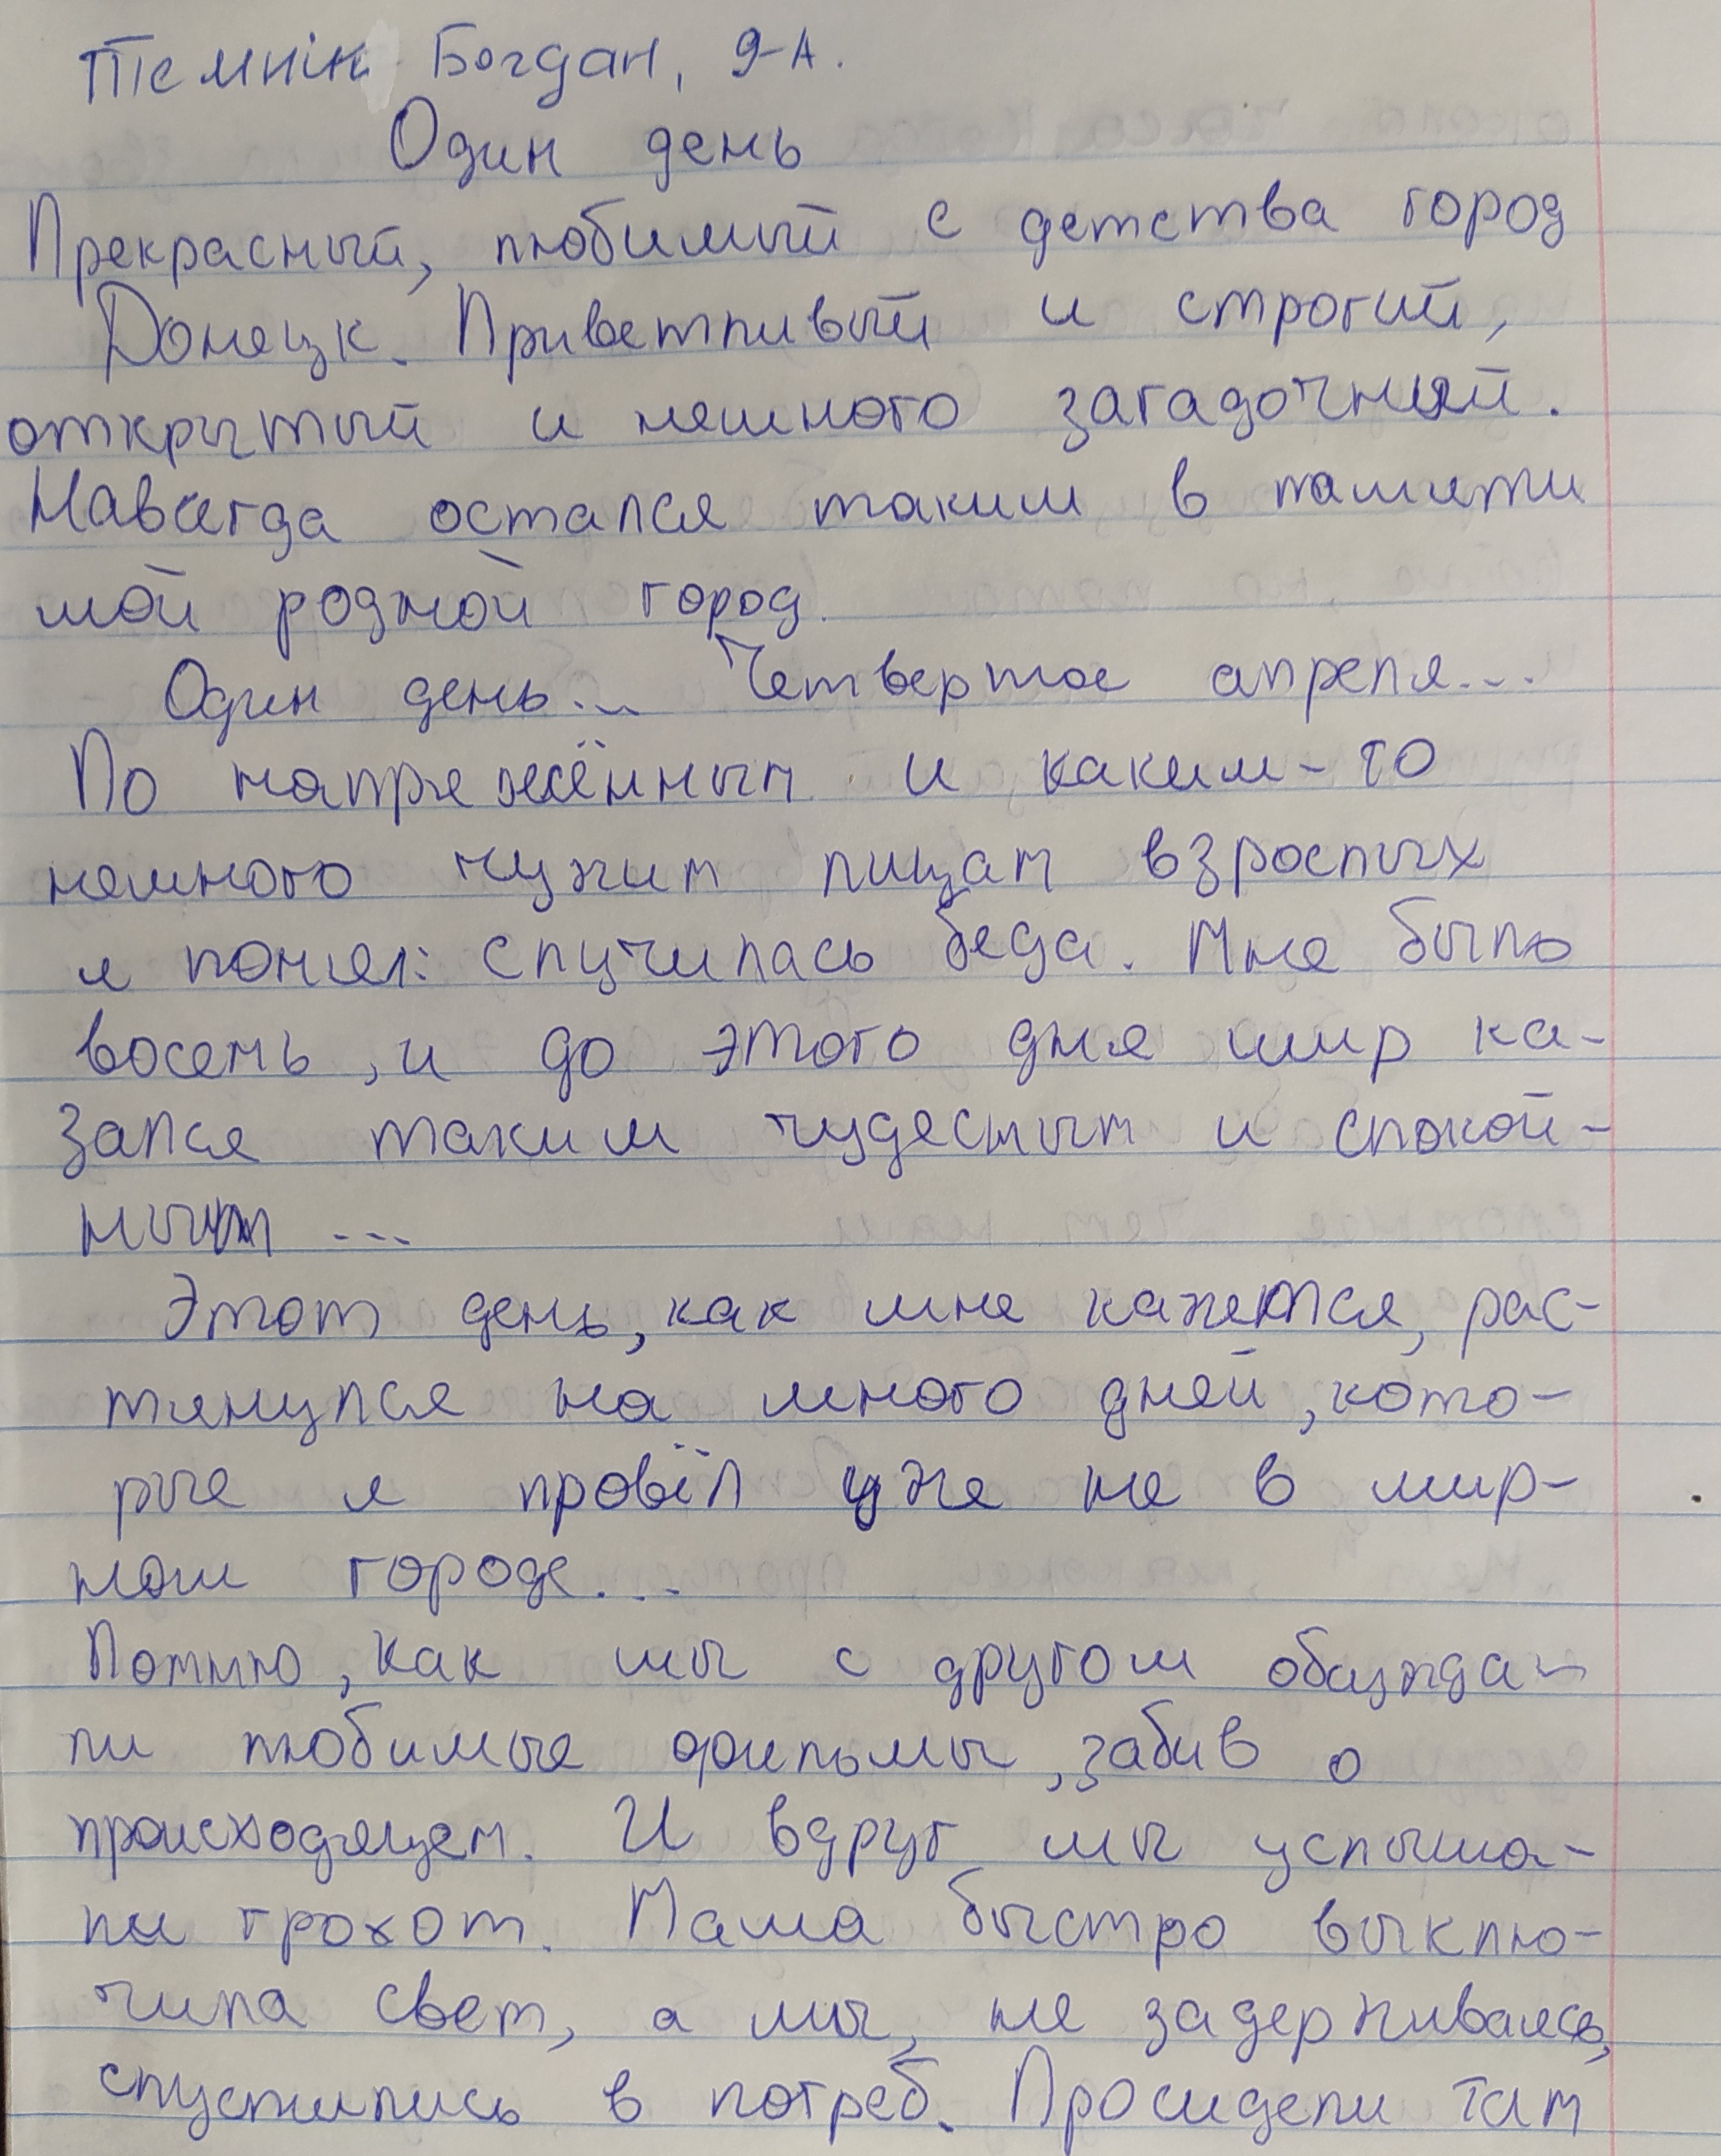 Тємнік Богдан, 9-А.
Один день
Прекрасный, любимый с детства город
Донецк. Приветливый и строгий,
открытый и немного загадочный.
Навсегда остался таким в памяти
мой родной город.
Один день... Четвертое апреля...
По напряжённым и каким-то
немного чужим лицам взрослых
я понял: случилась беда. Мне было
восемь, и до этого дня мир ка-
зался таким чудесным и спокой-
ным ...
Этот день, как мне кажется, рас-
тянулся на много дней, кото-
рые я провёл уже не в мир-
ном городе...
Помню, как мы с другом обсужда-
ли любимые фильмы, забив о
происходящем. И вдруг мы услыша-
ли грохот. Мама быстро выклю-
чила свет, а мы, не задерживаясь,
спустились в погреб. Просидели там